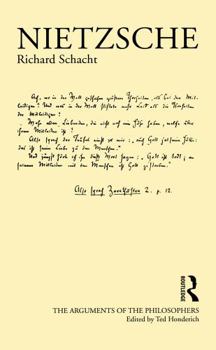 NIETZSCHE
Richard Schacht
Ach, wo in der Welt geschahen größere Thorheiten, als bei den Mit-
leidigen? Und was in der Welt stiftete mehr Leid als die Thorheiten
der Mitleidigen?
- Wehe allen Liebenden, die nicht noch eine Höhe haben, welche über
ihrem Mitleiden ist!
Also sprach der Teufel einst zu mir: „auch Gott hat seine Hölle:
das ist seine Liebe zu den Menschen."
Und jüngst hörte ich ihn dieß Wort sagen: „Gott ist todt; an
seinem Mitleiden mit den Menschen ist Gott gestorben."
Also sprach Zarathustra 2. p. 12.
ROUTLEDGE
THE ARGUMENTS OF THE PHILOSOPHERS
Edited by Ted Honderich